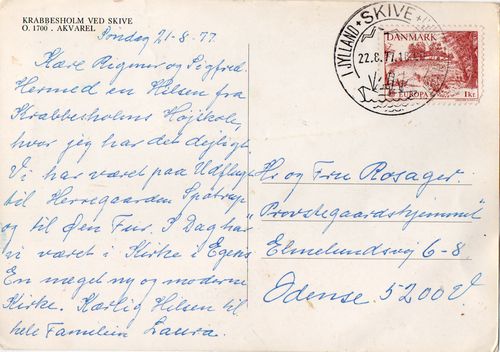 KRABBESHOLM VED SKIVE
O. 1700 . AKVAREL
Søndag 21-8.77.
Kære Regmor og Sigfred.
Hermed en Hilsen fra
Krabbesholms Højskole,
hvor jeg har det dejligt
Vi har været paa Udflugt
til Herregaarden Spøttrup
og til Øen Fur. I Dag har
vi været i Kirke i Egeris
En meget ny og moderne
Kirke. Kærlig Hilsen til
hele Familien Laura.
I JYLLAND + SKIVE +
22.8.77.
DANMARK
EUROPA
1 kr.
Hr og Fru Rosager.
"Provstegaardshjemmet"
Elmelundsvej 6-8
Odense. 5200 V.